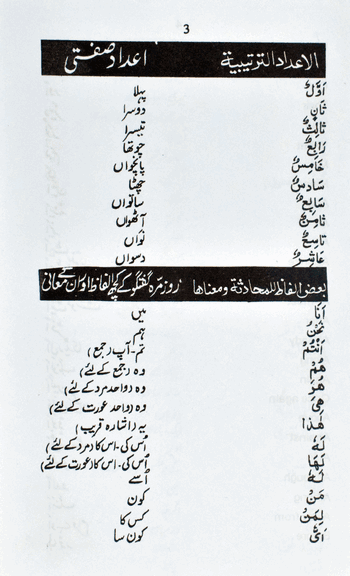 3
الاعداد الترتيبية اعداد صفتی
اَوَّلٌ پہلا
ثَانٍ دوسرا
ثَالِثٌ تیسرا
رَابِعٌ چوتھا
خَامِسٌ پانچواں
سَادِسٌ چھٹا
سَابِعٌ ساتواں
ثَامِنٌ آٹھواں
تَاسِعٌ نواں
عَاشِرٌ دسواں
بعض الفاظ للمحادثة ومعناها روزمرہ گفتگو کے کچھ الفاظ اور ان کے معانی
اَنَا میں
نَحْنُ ہم
اَنْتُمْ تم - آپ (جمع)
هُمْ وہ (جمع کے لئے)
هُوَ وہ (واحد مرد کے لئے)
هِیَ وہ (واحد عورت کے لئے)
هٰذَا یہ (اشارہ قریب)
لَهٗ اُس کی - اس کا (مرد کے لئے)
لَهَا اُس کی - اس کا (عورت کے لئے)
لَهٗ اُسے
مَنْ کون
لِمَنْ کس کا
اَیُّ کون سا